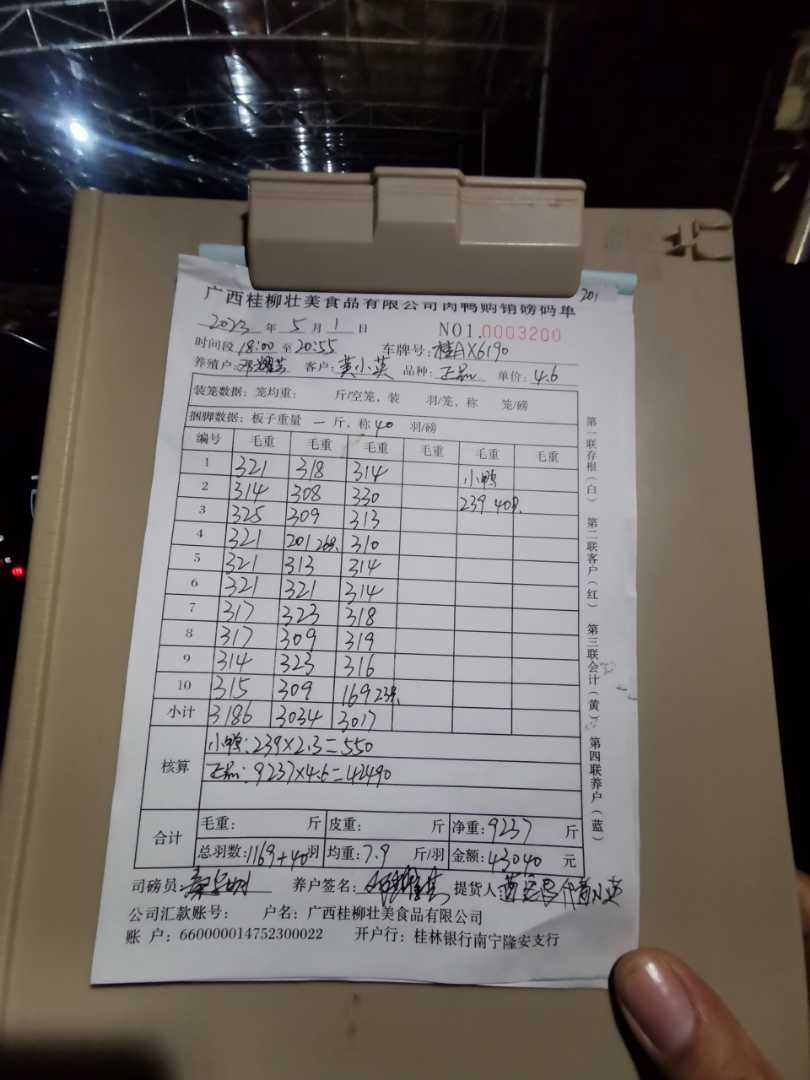 201
广西桂柳壮美食品有限公司肉鸭购销磅码单
2023 年 5 月 1 日 NO1.0003200
时间段 18:00 至 20:55 车牌号: 桂AX6190
养殖户: 客户: 黄小英 品种: 正品 单价: 4.6
装笼数据: 笼均重: 斤/空笼, 装 羽/笼, 称 笼/磅
捆脚数据: 板子重量 一 斤, 称 40 羽/磅
编号 毛重 毛重 毛重 毛重 毛重 毛重
1 321 318 314 小鸭
2 314 308 330 239 40只
3 325 309 313
4 321 201 26只 310
5 321 313 314
6 321 321 314
7 317 323 318
8 317 309 319
9 314 323 316
10 315 309 169 23只
小计 3186 3034 3017
核算
小鸭: 239×2.3=550
正品: 9237×4.6=42490
合计
毛重: 斤 皮重: 斤 净重: 9237 斤
总羽数: 1169+40 羽 均重: 7.9 斤/羽 金额: 43040 元
司磅员: 养户签名: 提货人
公司汇款账号: 户名: 广西桂柳壮美食品有限公司
账 户: 660000014752300022 开户行: 桂林银行南宁隆安支行
第一联存根(白) 第二联客户(红) 第三联会计(黄) 第四联养户(蓝)